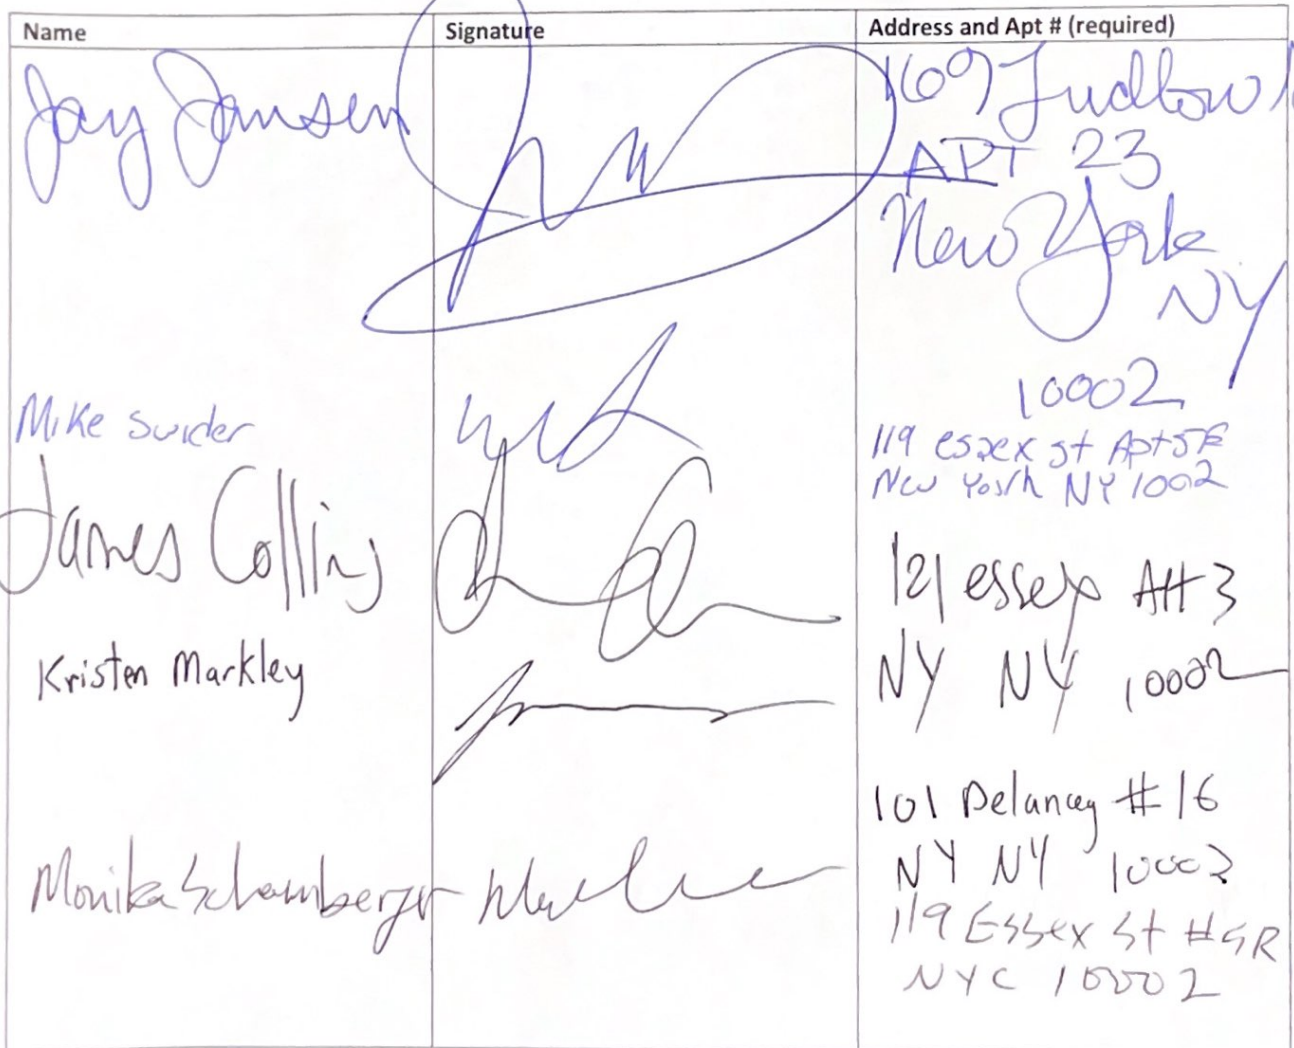 Name Signature Address and Apt # (required)
Jay Jansen 169 Ludlow
APT 23
New York
NY
10002
Mike Swider
119 essex st Apt 5F
New York NY 10002
James Collins
121 essex Apt 3
NY NY 10002
Kristen Markley
101 Delancey # 16
NY NY 10002
Monika Schamberger
119 Essex St #5R
NYC 10002